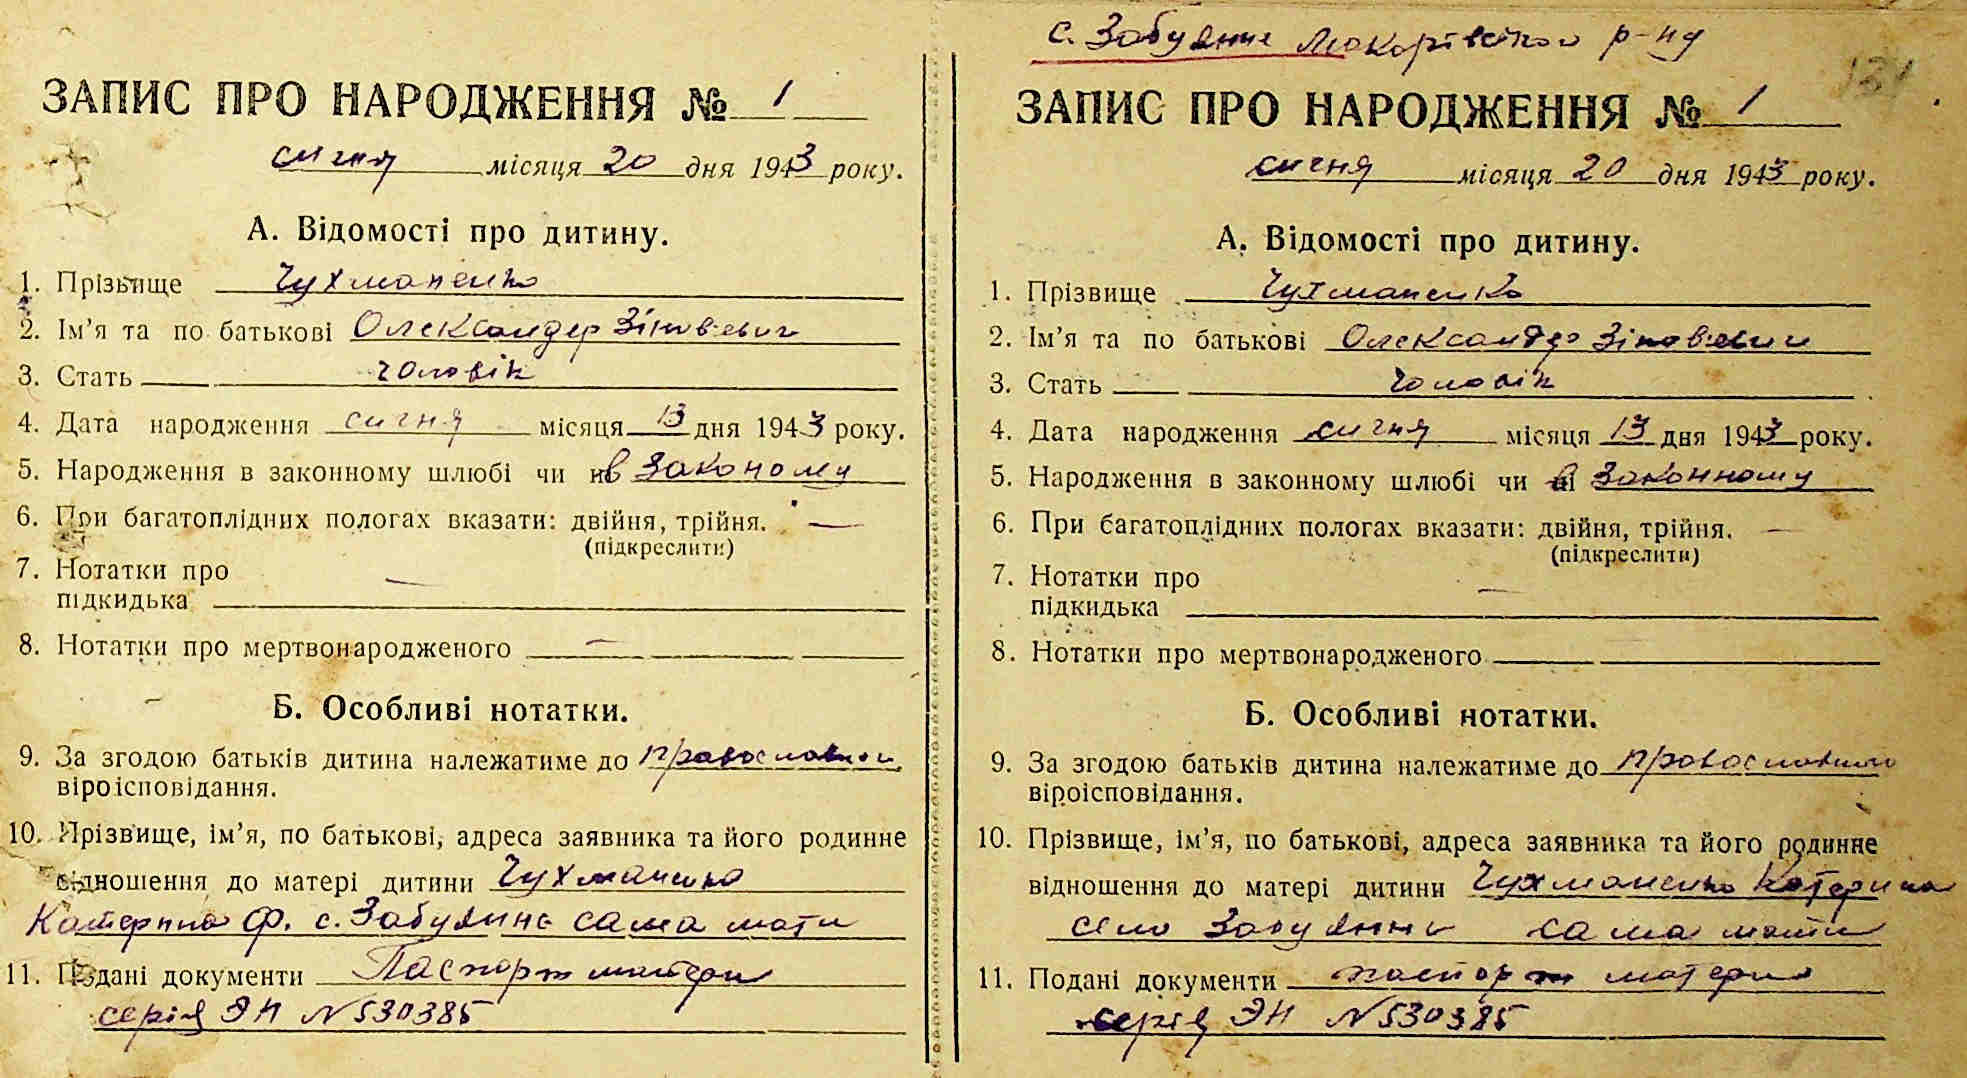 ЗАПИС ПРО НАРОДЖЕННЯ № 1
сичня місяця 20 дня 1943 року.
А. Відомості про дитину.
1. Прізвище Чухманенко
2. Ім’я та по батькові Олександер Зіновієвич
3. Стать чоловік
4. Дата народження сичня місяця 13 дня 1943 року.
5. Народження в законному шлюбі чи в законому
6. При багатоплідних пологах вказати: двійня, трійня. —
(підкреслити)
7. Нотатки про —
підкидька
8. Нотатки про мертвонародженого —
Б. Особливі нотатки.
9. За згодою батьків дитина належатиме до православного
віроісповідання.
10. Прізвище, ім’я, по батькові, адреса заявника та його родинне
відношення до матері дитини Чухманенко
Катерина Ф. с. Забуяння сама мати
11. Подані документи Паспорт матери
серія ЭН N 530385
с. Забуяння Макарівского р-ну
131
ЗАПИС ПРО НАРОДЖЕННЯ № 1
сичня місяця 20 дня 1943 року.
А. Відомості про дитину.
1. Прізвище Чухманенко
2. Ім’я та по батькові Олександер Зіновієвич
3. Стать чоловік
4. Дата народження сичня місяця 13 дня 1943 року.
5. Народження в законному шлюбі чи в законному
6. При багатоплідних пологах вказати: двійня, трійня. —
(підкреслити)
7. Нотатки про —
підкидька
8. Нотатки про мертвонародженого
Б. Особливі нотатки.
9. За згодою батьків дитина належатиме до православного
віроісповідання.
10. Прізвище, ім’я, по батькові, адреса заявника та його родинне
відношення до матері дитини Чухманенко Катерина
село Забуянни сама мати
11. Подані документи паспорт матери
серія ЭН N 530385